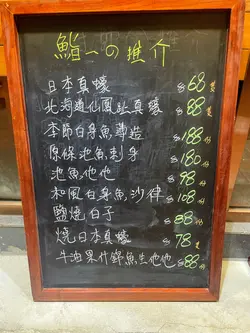 鮨一の推介
日本真蠔 $68隻
北海道仙鳳趾真蠔 $88隻
季節白身魚薄造 $188份
原條池魚刺身 $180份
池魚他他 $98份
和風白身魚沙律 $108份
鹽燒白子 $88份
燒日本真蠔 $78隻
牛油果什錦魚生他他 $88份